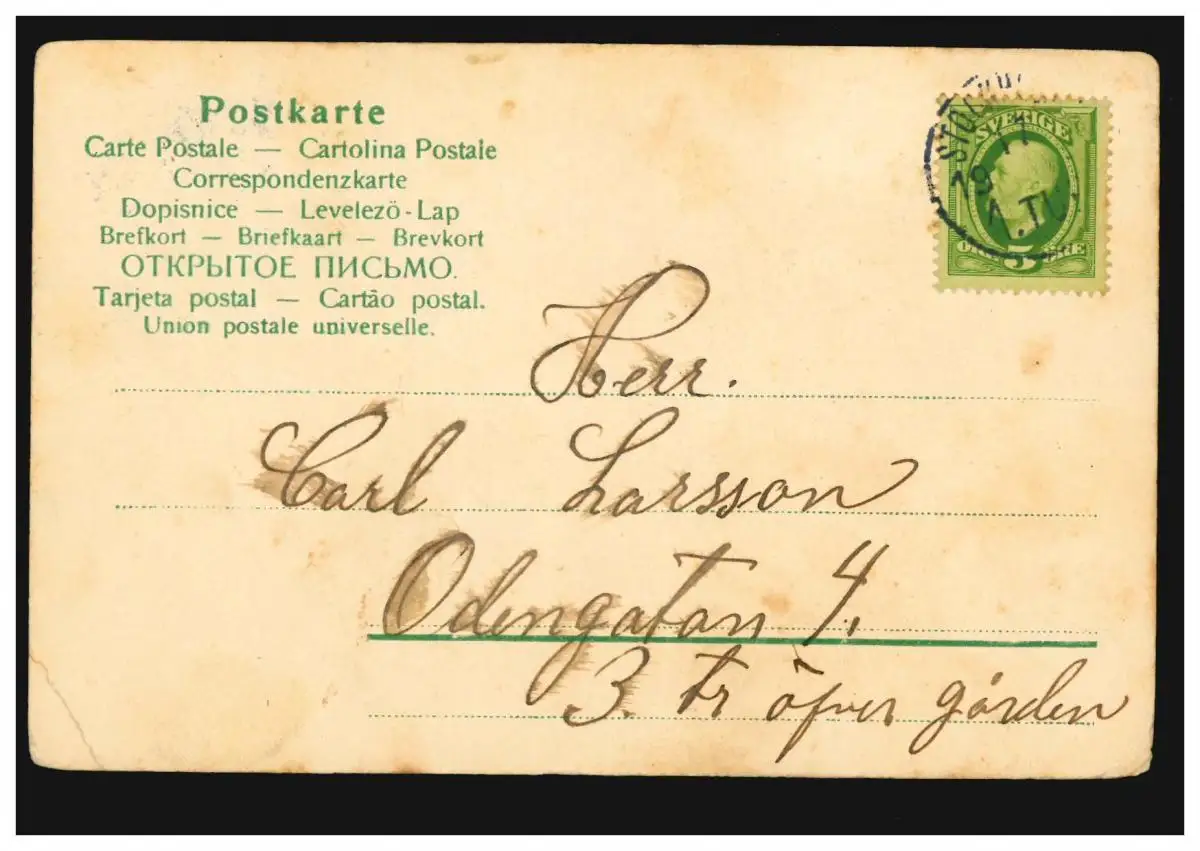 Postkarte
Carte Postale — Cartolina Postale
Correspondenzkarte
Dopisnice — Levelező-Lap
Brefkort — Briefkaart — Brevkort
ОТКРЫТОЕ ПИСЬМО.
Tarjeta postal — Cartão postal.
Union postale universelle.
SVERIGE
5
Herr.
Carl Larsson
Odengatan 4.
3. tr öfver gården